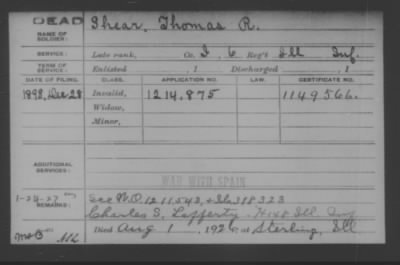 DEAD
NAME OF SOLDIER: Shear, Thomas R.
SERVICE: Late rank, Co. I, 6 Reg't Ill Inf.
TERM OF SERVICE: Enlisted , 1 Discharged , 1
DATE OF FILING. CLASS. APPLICATION NO. LAW. CERTIFICATE NO.
1898, Dec 28 Invalid, 1214,875 1149566.
Widow,
Minor,
ADDITIONAL SERVICES:
WAR WITH SPAIN
1-24-27 See W.O. 1211542,
REMARKS: Charles I, Lafferty Ill. Inf
Died Aug 1, 1926, at Sterling, Ill